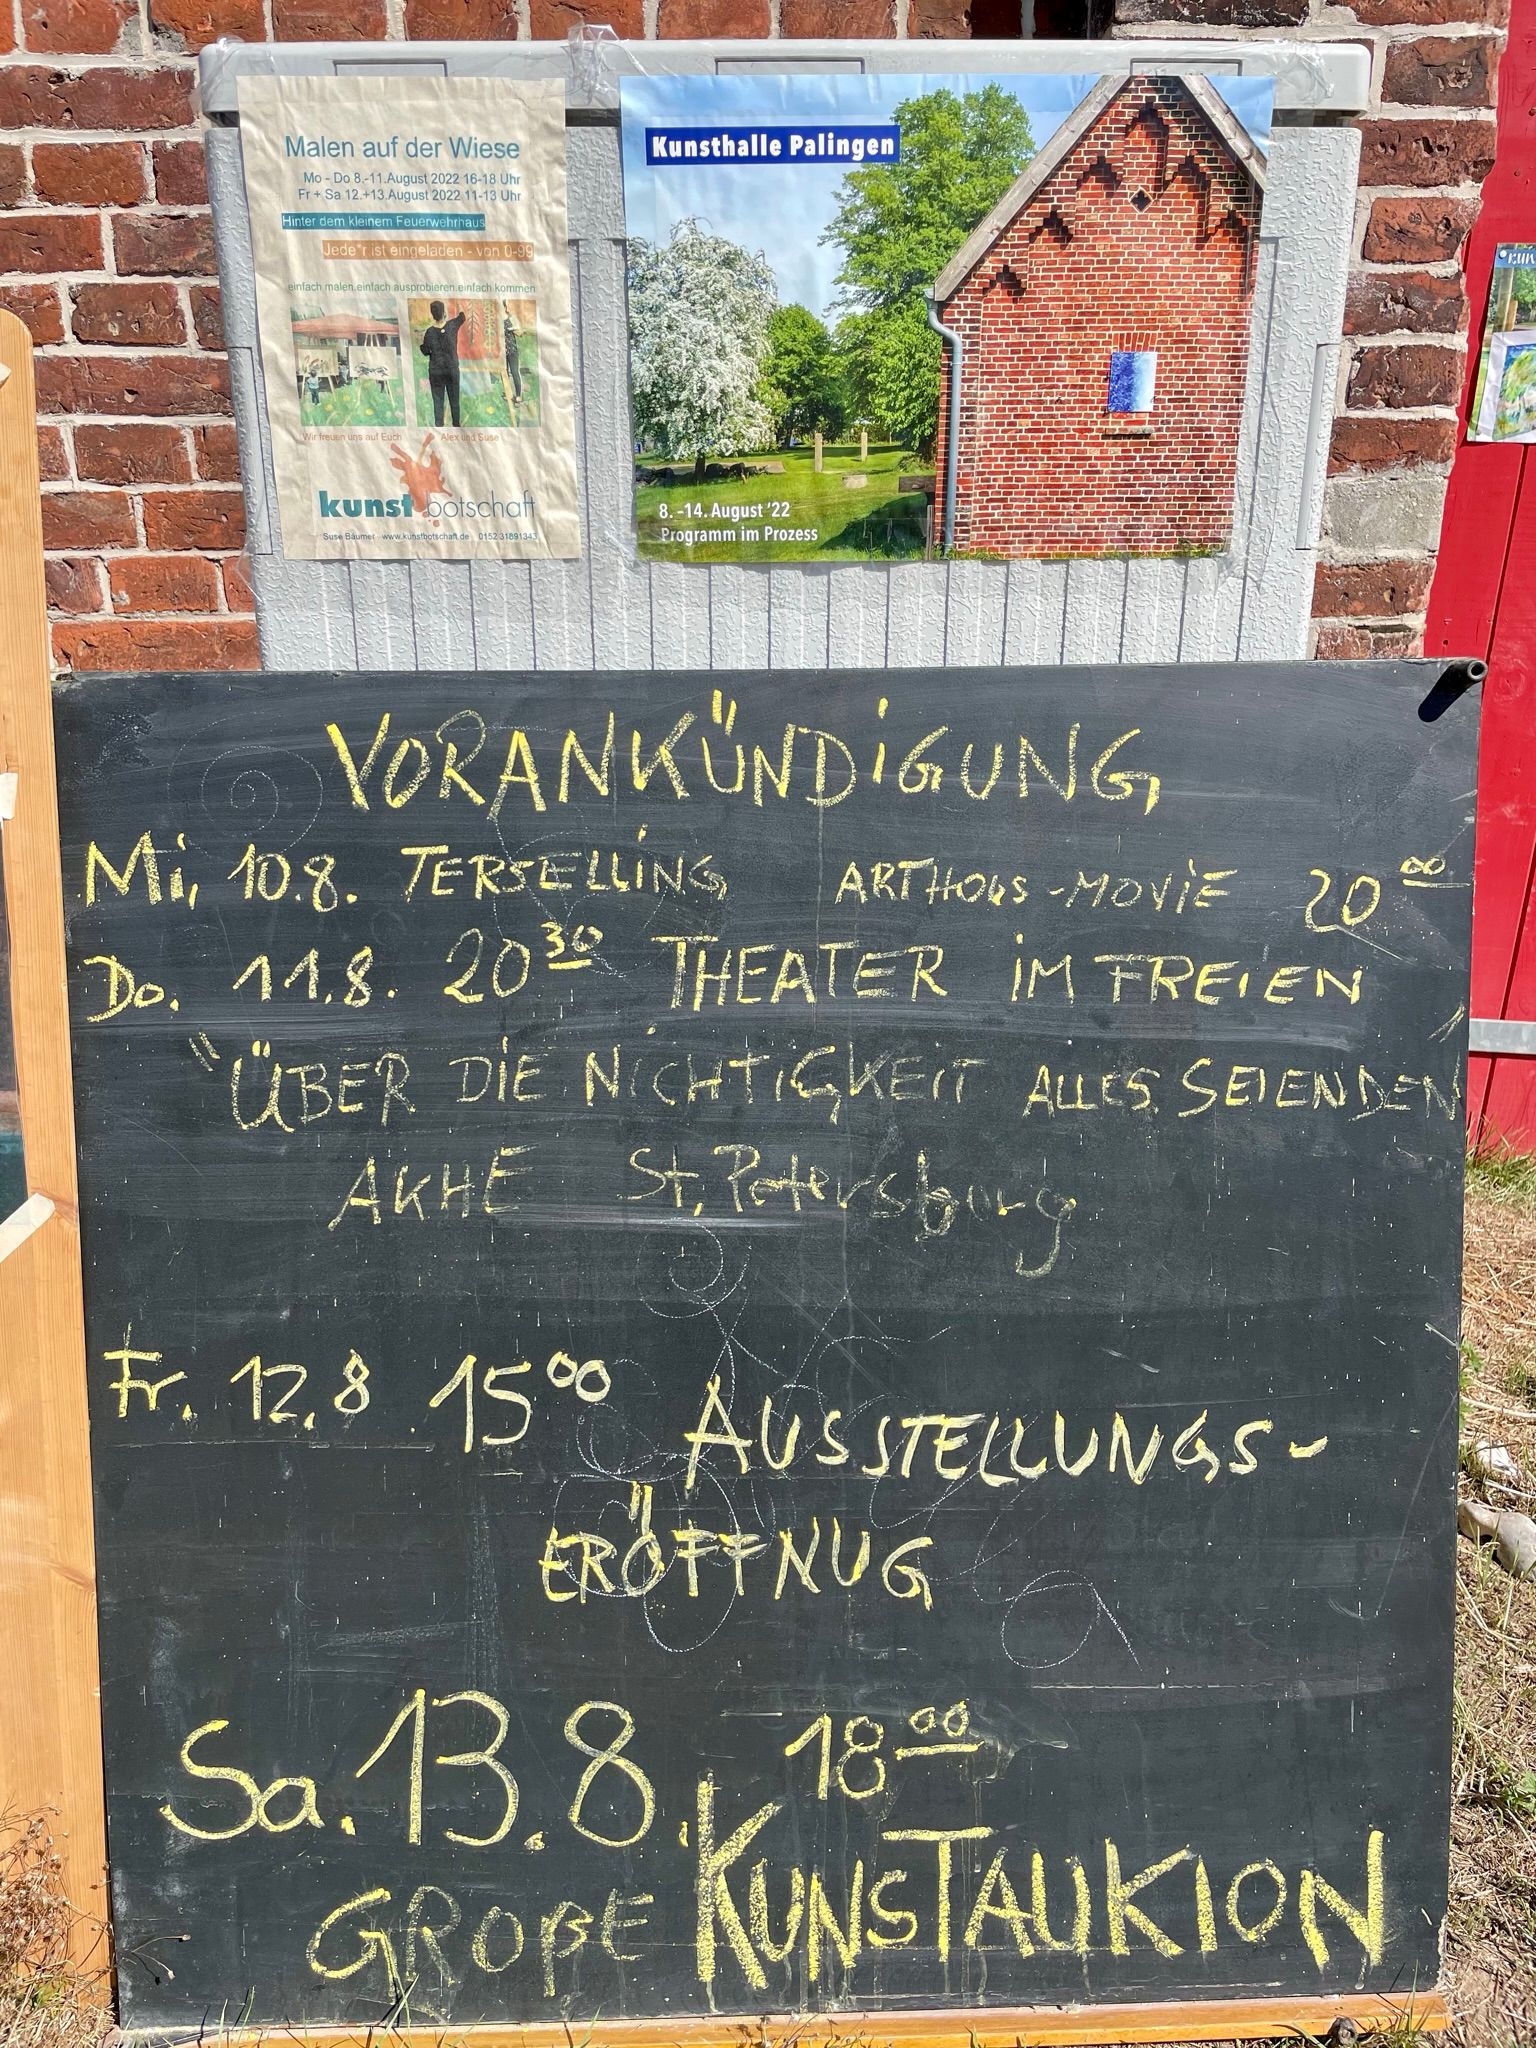 Malen auf der Wiese
Mo - Do 8.-11.August 2022 16-18 Uhr
Fr + Sa 12.+13.August 2022 11-13 Uhr
Hinter dem kleinem Feuerwehrhaus
Jede*r ist eingeladen - von 0-99
einfach malen.einfach ausprobieren.einfach kommen
Wir freuen uns auf Euch Alex und Suse
kunstbotschaft
Suse Bäumer www.kunstbotschaft.de 0152 31891343
Kunsthalle Palingen
8. -14. August '22
Programm im Prozess
VORANKÜNDIGUNG
Mi, 10.8. TERSELLING ARTHOUS-MOVIE 20 00
Do. 11.8. 20 30 THEATER IM FREIEN
"ÜBER DIE NICHTIGKEIT ALLES SEIENDEN"
AKHE St. Petersburg
Fr. 12.8 15 00 AUSSTELLUNGS-
ERÖFFNUG
Sa. 13.8. 18 00
GROßE KUNSTAUKION